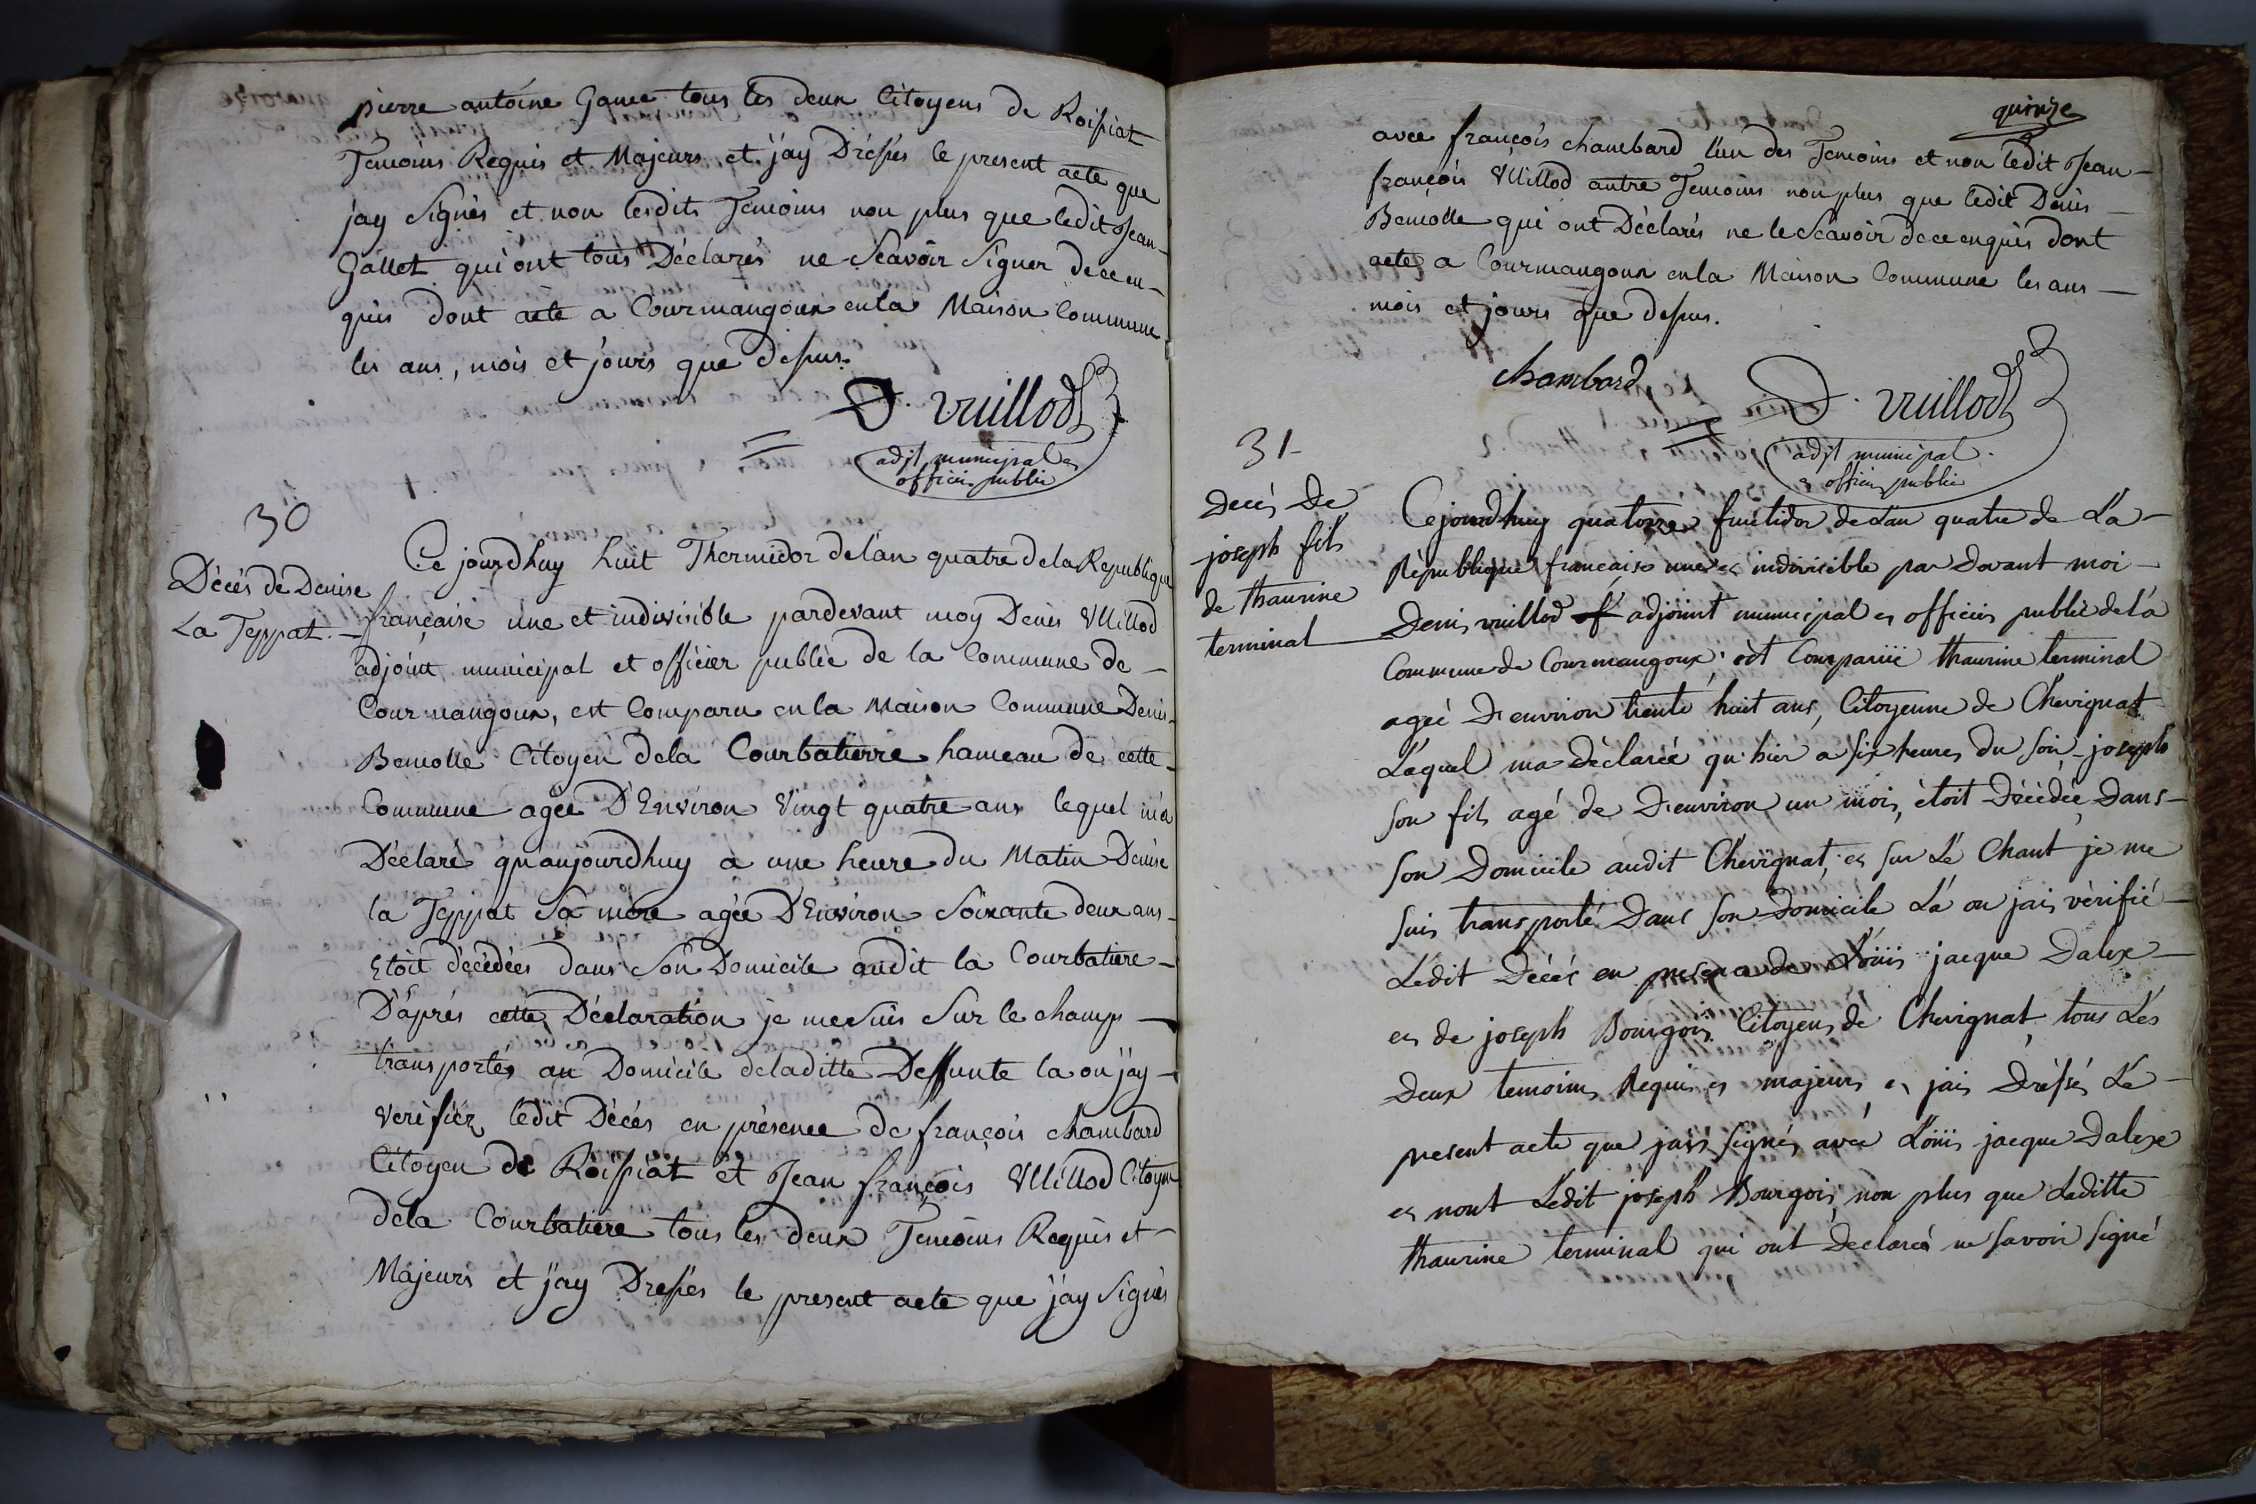 pierre antoine Gance tous les deux Citoyens de Roissiat
Temoins Requis et Majeurs, et j'ay Dressés le present acte que
jay Signés et non lesdits Temoins non plus que ledit Jean-
Gallet qui ont tous Déclarés ne Scavoir Signer de ce en-
quis dont acte a Courmangoux en la Maison Commune
les ans, mois et jours que dessus.
D. vuillod
adjt municipal et
officier public
30
Décès de Denise
La Teppat. -
Ce jourdhuy huit Thermidor de lan quatre de la Republique
française une et indivisible pardevant moy Denis Vuillod
adjoint municipal et officier public de la Commune de -
Courmangoux, est Comparu en la Maison Commune Denis-
Bemolle Citoyen de la Courbatierre hameau de cette-
Commune agée D'Environ Vingt quatre ans lequel m'a
Déclaré qu'aujourdhuy a une heure du Matin Denise
la Teppat Sa mère agée D'Environ Soixante deux ans-
Etoit décédées dans Son Domicile audit la Courbatiere-
D'après cette Déclaration je me suis Sur le champ -
transportés au Domicile de laditte Deffunte la ou j'ay -
verifiéz ledit Décés en présence de françois chambard
Citoyen de Roissiat et Jean françois Vuillod Citoyen
de la Courbatiere tous les deux Temoins Requis et -
Majeurs et j'ay Dressés le present acte que j'ay Signés
quinze
avec françois chambard l'un des Temoins et non ledit Jean-
françois Vuillod autre Temoins non plus que ledit Denis -
Bemolle qui ont Déclarés ne le Scavoir de ce enquis dont
acte a Courmangoux en la Maison Commune les ans -
mois et jours que dessus.
chambard
D. vuillod
adjt municipal
et officier public
31-
Decès De
joseph fils
de thaurine
terminal
Cejourdhuy quatorze fructidor de Lan quatre de La-
République française une et indivisible par Devant moi -
Denis vuillod adjoint municipal et officier public de la
Commune de Courmangoux, est Comparüe thaurine terminal
agée D'environ trente huit ans, Citoyenne de Chevignat
Laquel ma déclarée qu'hier a six heures du soir joseph
son fils agé de D'environ un mois, étoit Décédée, Dans-
son Domicile audit Chevignat, et sur Le Chant je me
suis transporté Dans son Domicile La ou jais vérifié -
Ledit Décés en presence de Loüis jacque Dalex -
et de joseph Bourgois, Citoyens de Chevignat tous Les
Deux temoins Requis et majeurs et jais Dréssés Le -
present acte que jais signés avec Loüis jacque Dalexe
et nont Ledit joseph Bourgois, non plus que Laditte
thaurine terminal qui ont Déclarés ne savoir signé